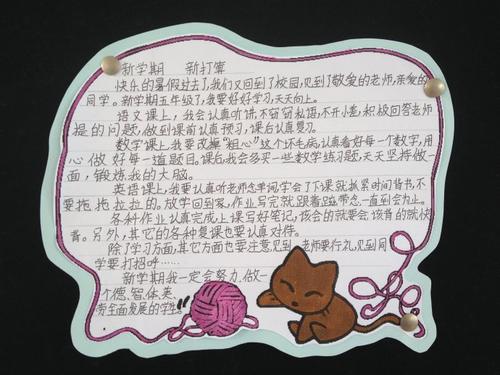 新学期 新打算
快乐的暑假过去了,我们又回到了校园,见到了敬爱的老师,亲爱的
同学。新学期五年级了,我要好好学习,天天向上。
语文课上,我会认真听讲,不窃窃私语,不开小差,积极回答老师
提的问题,做到课前认真预习,课后认真复习。
数学课上,我要改掉“粗心”这个坏毛病,认真看好每一个数字,用
心做好每一道题目。课后我会多买一些数学练习题,天天坚持做一
面,锻炼我的大脑。
英语课上,我要认真听老师念单词,学会了下课就抓紧时间背书,不
要拖拖拉拉的。放学回到家,作业写完就跟着磁带念一直到会为止。
各种作业认真完成,上课写好笔记,该会的就要会,该背的就快
背。另外,其它的各种复课也要认真对待。
除了学习方面,其它方面也要注意,见到老师要行礼,见到同
学要打招呼……
新学期我一定会努力,做一
个德、智、体、美、
劳全面发展的学生。